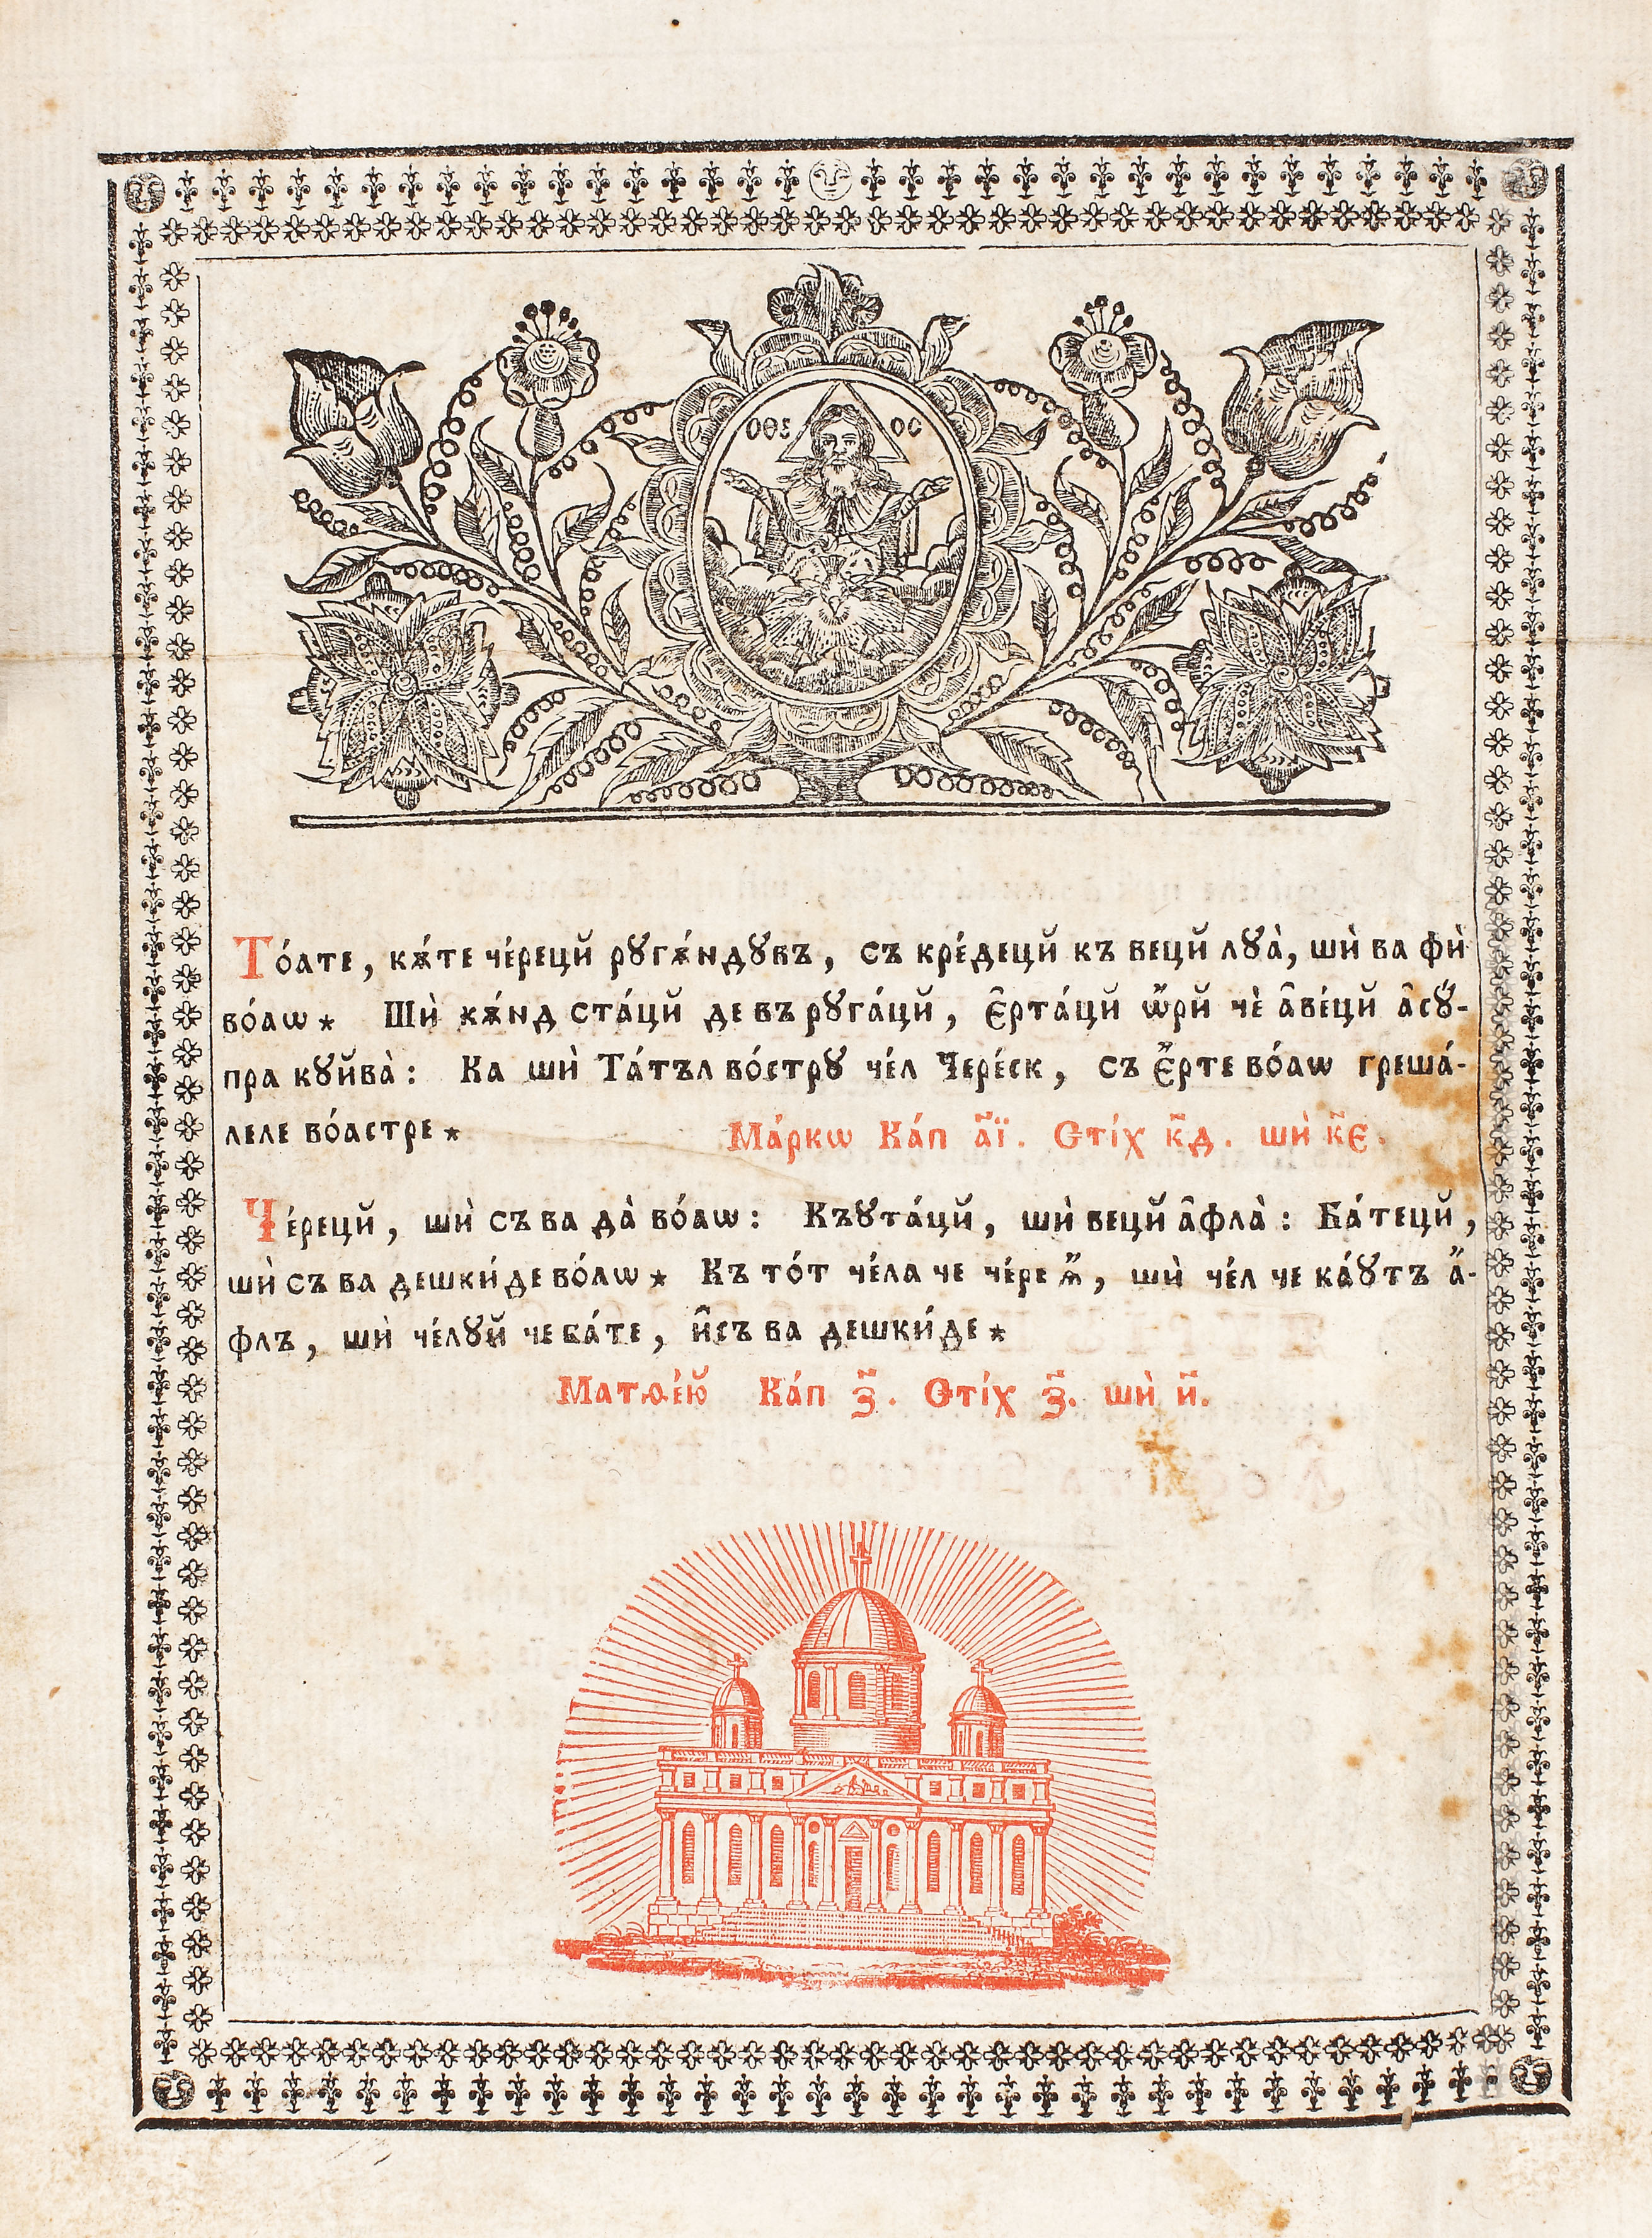 ѲЕОС
То́ате, кѫ́те че́рецй рꙋгѫ́ндꙋвъ, съ кре́децй къ вецй лꙋа̀, шѝ ва фѝ
во́аѡ⋆ Шѝ кѫ́нд ста́цй де въ рꙋга́цй, є̂рта́цй ѡ҆́рй чѐ а̂ве́цй а̂сꙋ́-
пра кꙋйва̀: Ка шѝ Та́тъл во́стрꙋ че́л Чере́ск, съ є҆́рте во́аѡ греша́-
леле во́астре⋆
Ма́ркѡ Ка́п а҃ї. Сті́х к҃д. шѝ к҃є.
Че́рецй, шѝ съ ва да̀ во́аѡ: Къꙋта́цй, шѝ вецй а̂фла̀: Ба́тецй,
шѝ съ ва дешки́де во́аѡ⋆ Къ то́т че́ла че че́ре ꙗ҆́, шѝ че́л че ка́ꙋтъ а҆́-
флъ, шѝ че́лꙋй че ба́те, и̂съ ва дешки́де⋆
Матѳе́ю̆ Ка́п з҃. Сті́х з҃. шѝ и҃.